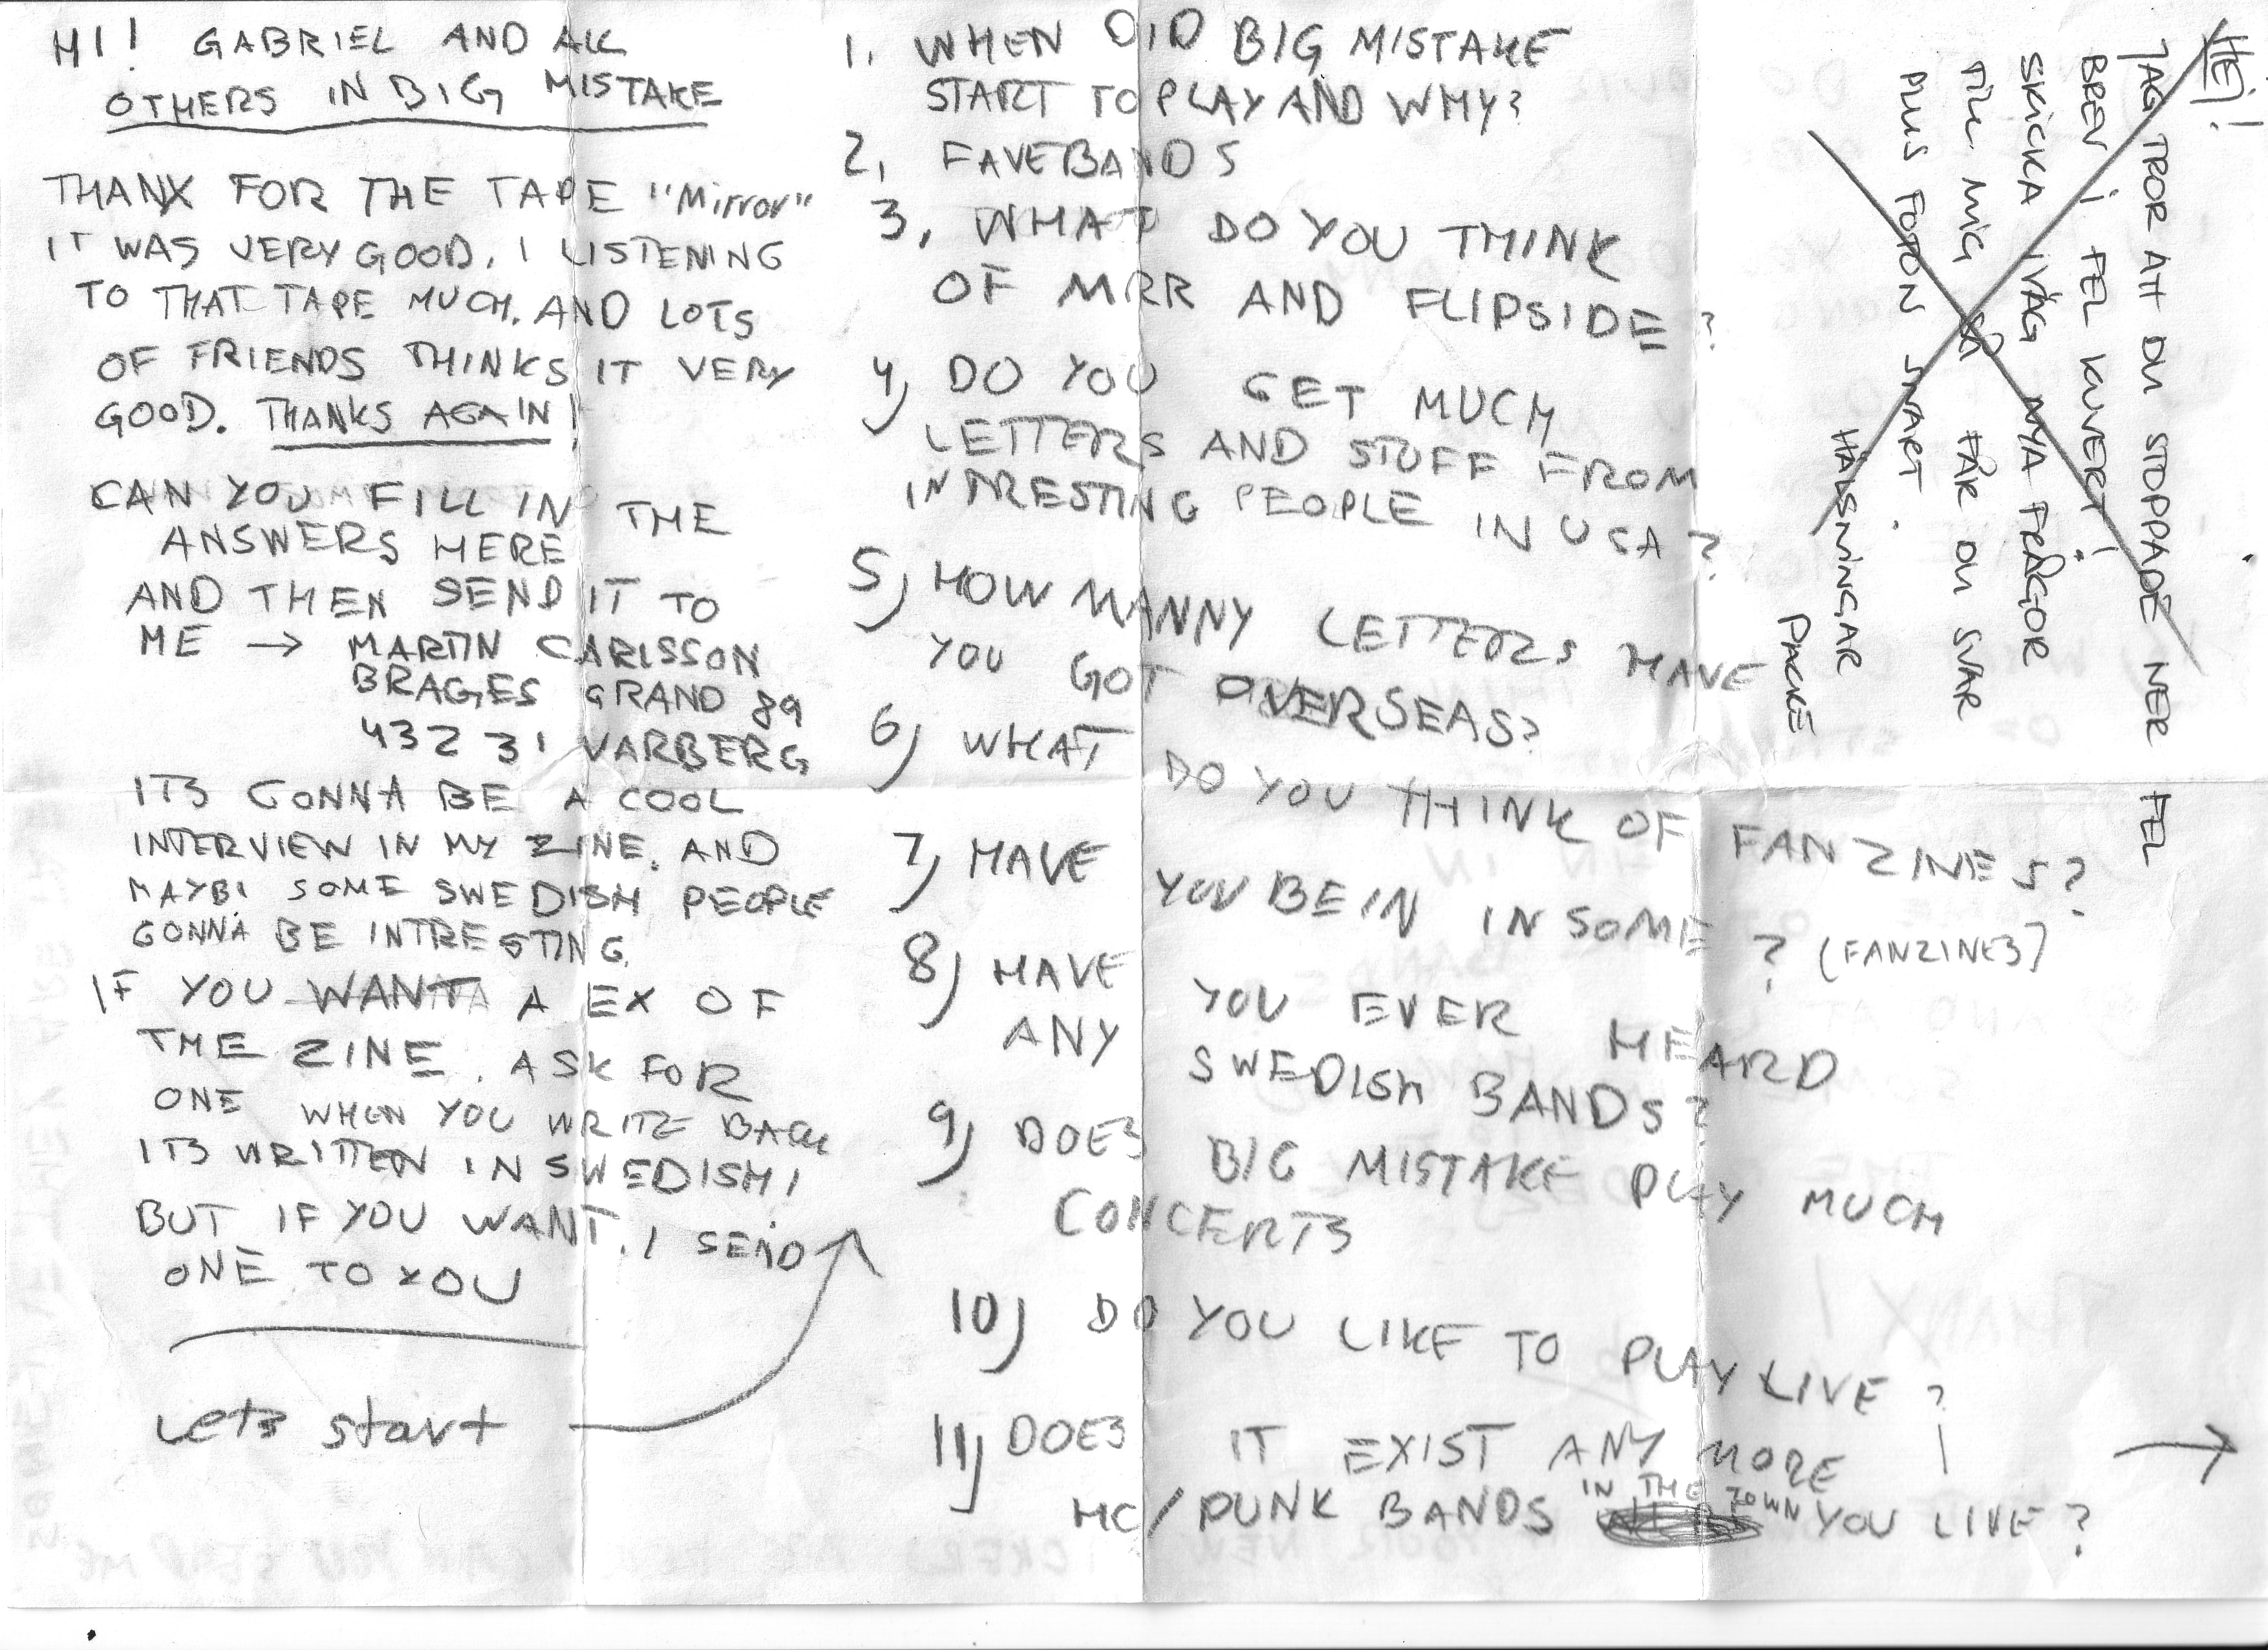 HI! GABRIEL AND ALL
OTHERS IN BIG MISTAKE
THANX FOR THE TAPE "Mirror"
IT WAS VERY GOOD. I LISTENING
TO THAT TAPE MUCH. AND LOTS
OF FRIENDS THINKS IT VERY
GOOD. THANKS AGAIN!
CAN YOU FILL IN THE
ANSWERS HERE
AND THEN SEND IT TO
ME → MARTIN CARLSSON
BRAGES GRAND 89
432 31 VARBERG
ITS GONNA BE A COOL
INTERVIEW IN MY ZINE. AND
MAYBI SOME SWEDISH PEOPLE
GONNA BE INTRESTING.
IF YOU WANT A EX OF
THE ZINE. ASK FOR
ONE WHEN YOU WRITE BACK
ITS WRITTEN IN SWEDISH!
BUT IF YOU WANT. I SEND
ONE TO YOU
Lets start
1. WHEN DID BIG MISTAKE
START TO PLAY AND WHY?
2. FAVEBANDS
3. WHAT DO YOU THINK
OF MRR AND FLIPSIDE?
4) DO YOU GET MUCH
LETTERS AND STUFF FROM
INTRESTING PEOPLE IN USA?
5) HOW MANNY LETTERS HAVE
YOU GOT OVERSEAS?
6) WHAT DO YOU THINK OF FANZINES?
7) HAVE YOU BE IN IN SOME? (FANZINES)
8) HAVE YOU EVER HEARD
ANY SWEDISH BANDS?
9) DOES BIG MISTAKE PLAY MUCH
CONCERTS
10) DO YOU LIKE TO PLAY LIVE?
11) DOES IT EXIST ANY MORE
HC/PUNK BANDS IN THE TOWN YOU LIVE?
→
HEJ!
JAG TROR ATT DU STOPPADE NER FEL
BREV I FEL KUVERT!
SKICKA IVÄG NYA FRÅGOR
TILL MIG SÅ FÅR DU SVAR
PLUS FOTON SNART.
HÄLSNINGAR